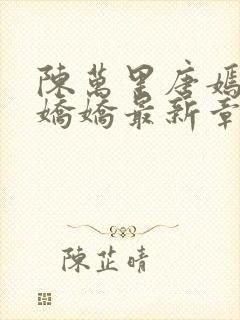 陳萬里唐嫣
嬌嬌最新章
陳芷晴